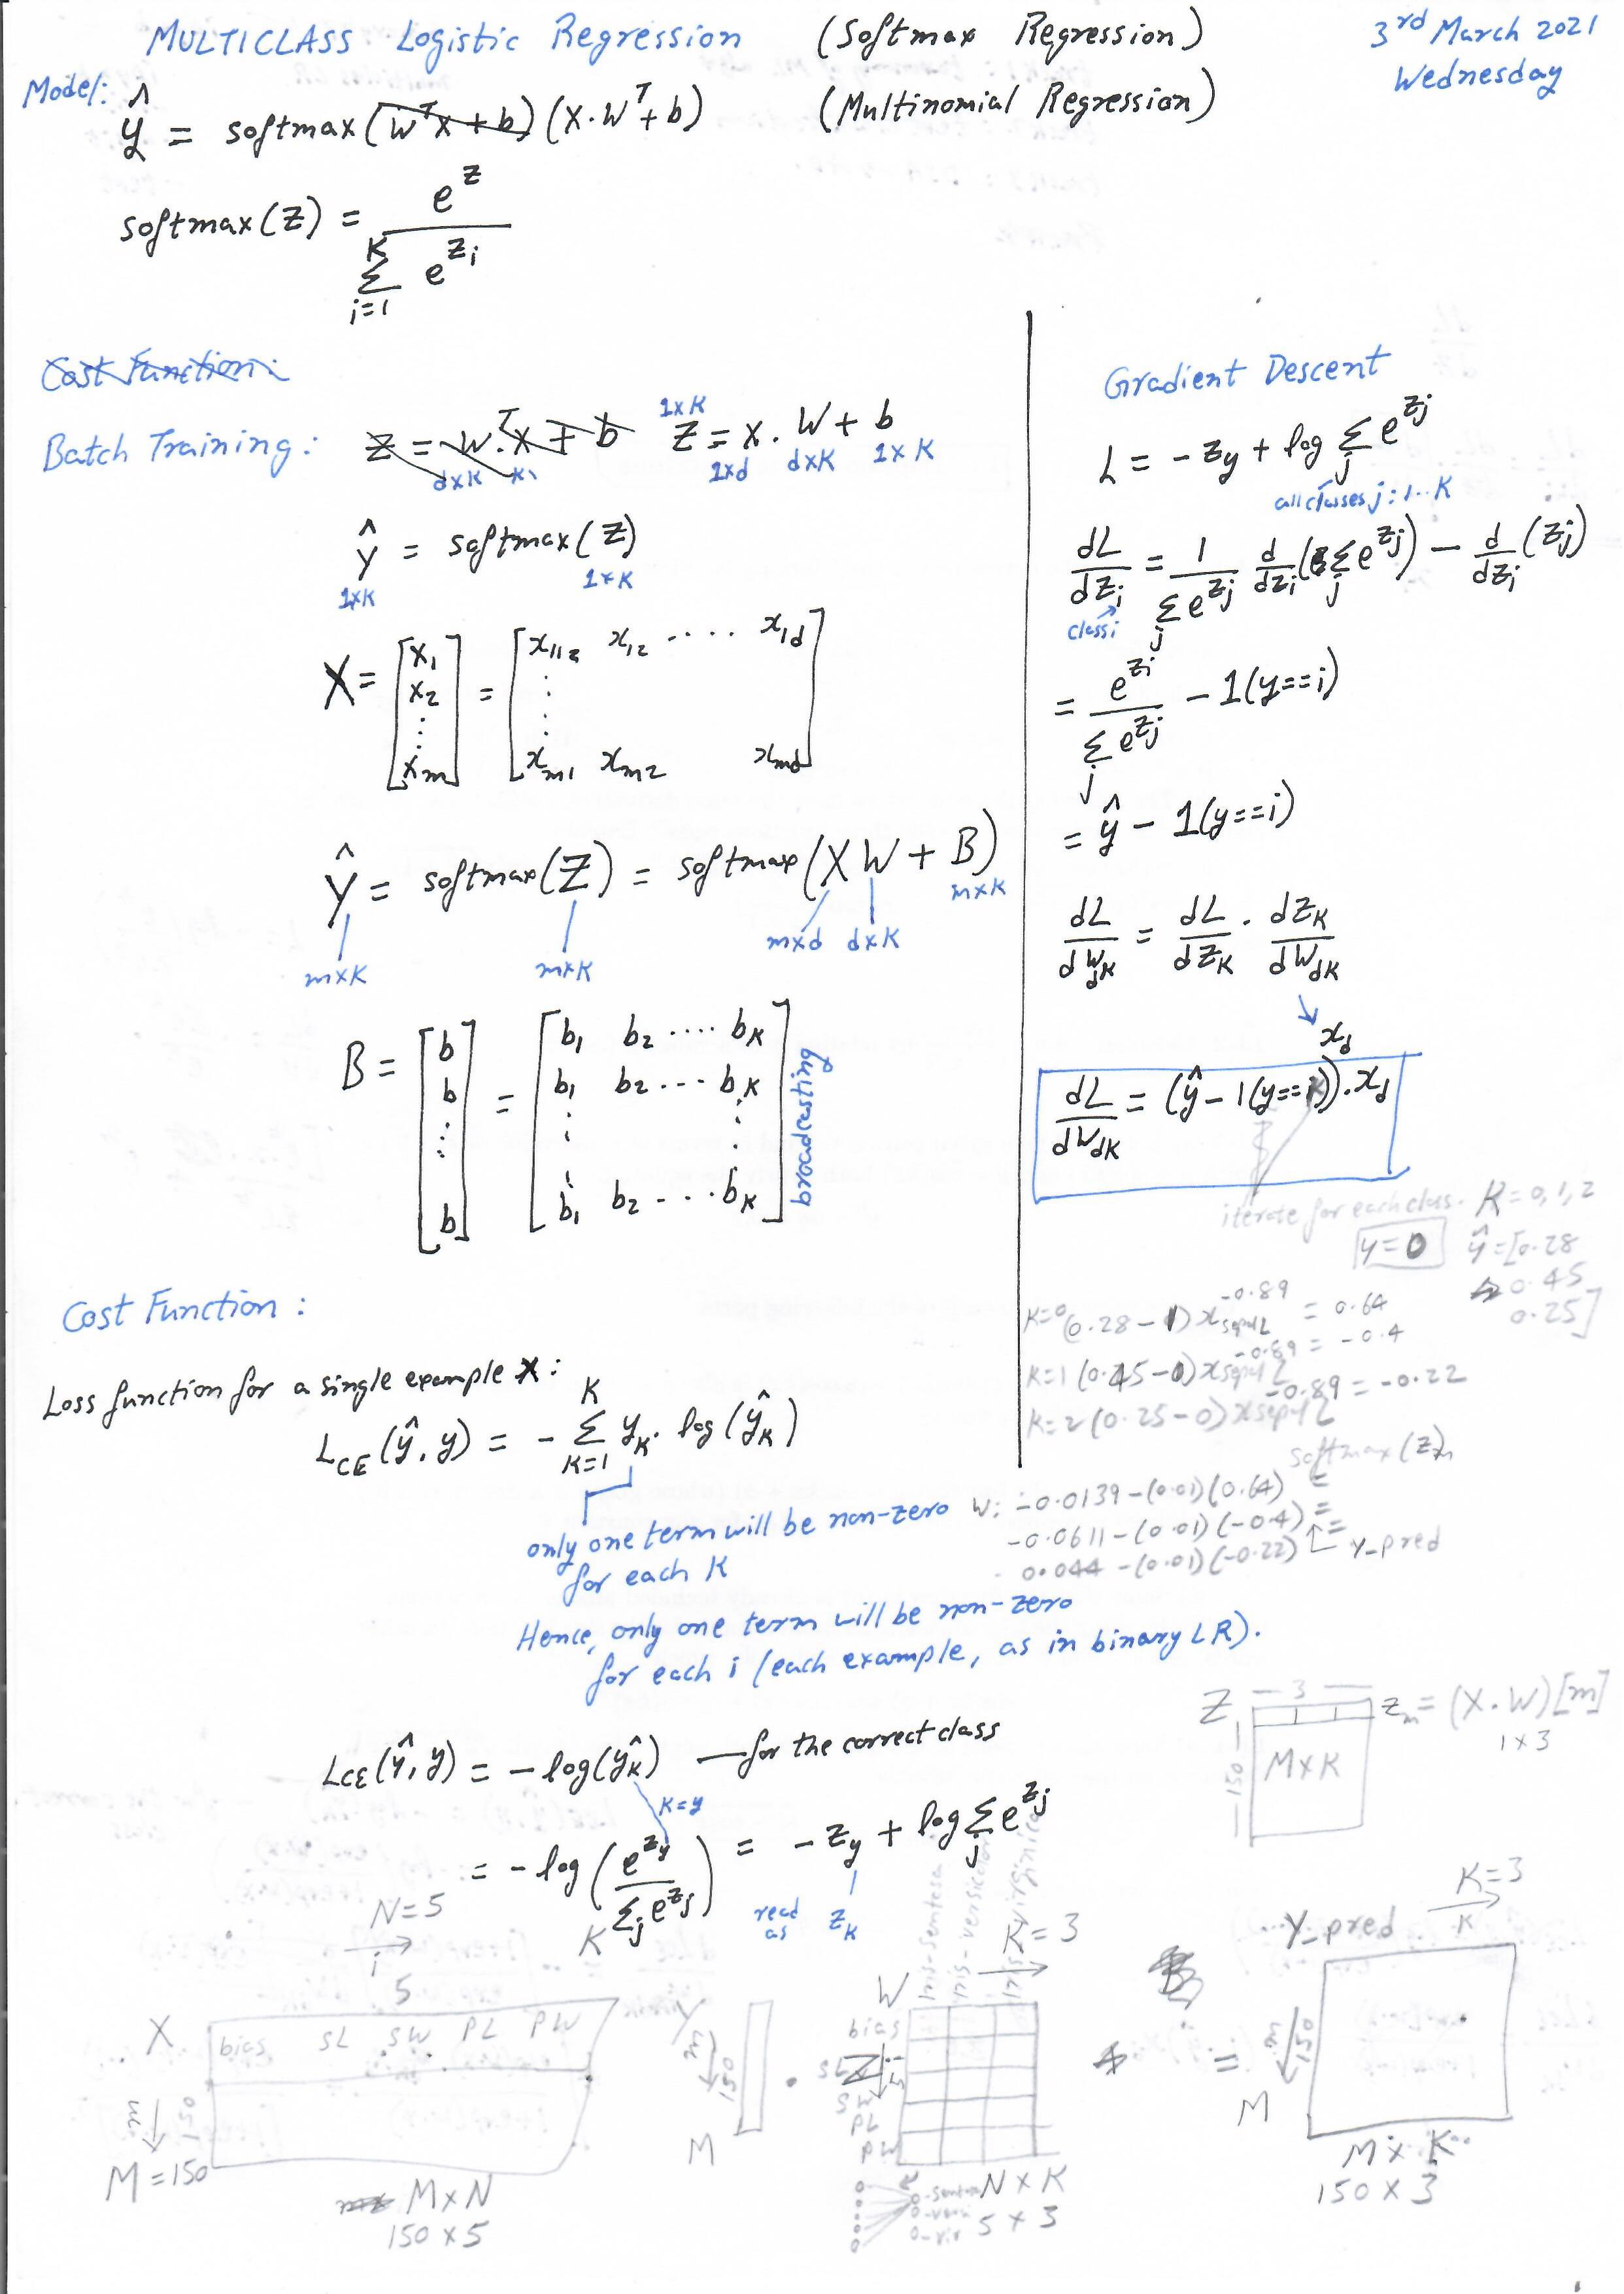 MULTICLASS Logistic Regression (Softmax Regression) 3rd March 2021
Wednesday
Model: ŷ = softmax(WᵀX + b) (X·Wᵀ + b) (Multinomial Regression)
softmax(z) = e^z / Σ_{i=1}^{K} e^{z_i}
Cost Function:
Batch Training: z = W^T.X + b z = x . W + b
1xK
dxK 1xd dxK 1xK
ŷ = softmax(z)
1xK 1xK
X = [x1 x2 ⋮ xm] = [x11 x12 .... x1d ⋮ xm1 xm2 xmd]
Ŷ = softmax(Z) = softmax(XW + B)
mxK mxK mxd dxK mxK
B = [b b ⋮ b] = [b1 b2 .... bK b1 b2 ... bK ⋮ b1 b2 - ... bK] broadcasting
Cost Function:
Loss function for a single example x:
L_CE(ŷ, y) = - Σ_{K=1}^{K} y_K . log(ŷ_K)
only one term will be non-zero
for each K
Hence, only one term will be non-zero
for each i (each example, as in binary LR).
L_CE(ŷ, y) = -log(ŷ_K) — for the correct class
K=y
= -log(e^{z_y} / Σ_j e^{z_j}) = -z_y + log Σ_j e^{z_j}
read as z_K
Gradient Descent
L = -z_y + log Σ_j e^{z_j}
all classes j: 1..K
dL/dz_i = 1/Σ_j e^{z_j} d/dz_i (Σ_j e^{z_j}) - d/dz_i (z_j)
class i
= e^{z_i} / Σ_j e^{z_j} - 1(y==i)
= ŷ - 1(y==i)
dL/dW_dK = dL/dz_K . dz_K/dW_dK
x_d
dL/dW_dK = (ŷ - 1(y==K)).x_d
iterate for each class. K = 0, 1, 2
y=0 ŷ = [0.28
0.45
0.25]
K=0 (0.28-1) x sepal L -0.89 = 0.64
K=1 (0.45-0) x sepal L -0.89 = -0.4
K=2 (0.25-0) x sepal L -0.89 = -0.22
softmax(z)m
W: -0.0139-(0.01)(0.64) =
-0.0611-(0.01)(-0.4) =
0.044-(0.01)(-0.22) Y_pred
Z - 3 - z_m = (X.W)[m]
1x3
-150- MxK
N=5
i
5
X bias SL SW PL PW
m 150
M=150
MxN
150x5
Y
m 150
M
.
K
W Iris-sentosa Iris-versicolor Iris-virginica K=3
bias
SL
SW
PL
PW
NxK
5x3
=
Y_pred K=3
K
m 150
M
MxK
150x3